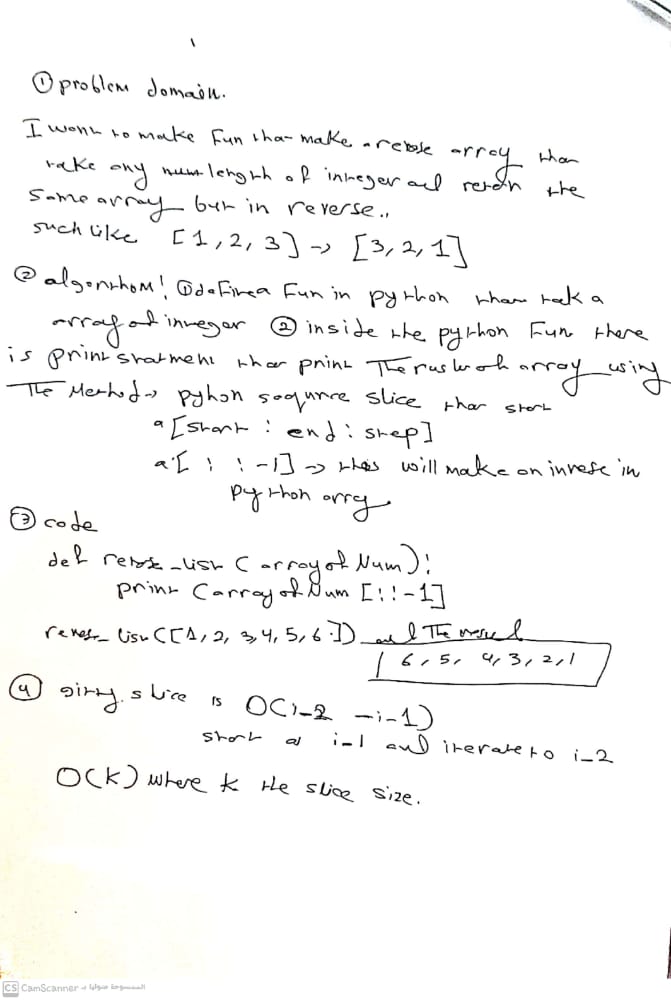 ① problem domain.
I want to make Fun that make a revese array that
take any num length of integer and retern the
Same array but in reverse.,
such like [1,2,3] → [3,2,1]
② algorithom! ① define a Fun in python that take a
array of integer ② inside the python Fun there
is print statment that print The array using
The Method → pyhon sequnce slice that start
a[start : end : step]
a[ : : -1] → this will make an inverse in
python array
③ code
def _list (array of Num):
print (array of Num [::-1]
_list([1,2,3,4,5,6]) and The
6,5,4,3,2,1
④ slice is O(i_2 -i_1)
start at i_1 and iterate to i_2
O(k) where k the slice size.
CS CamScanner